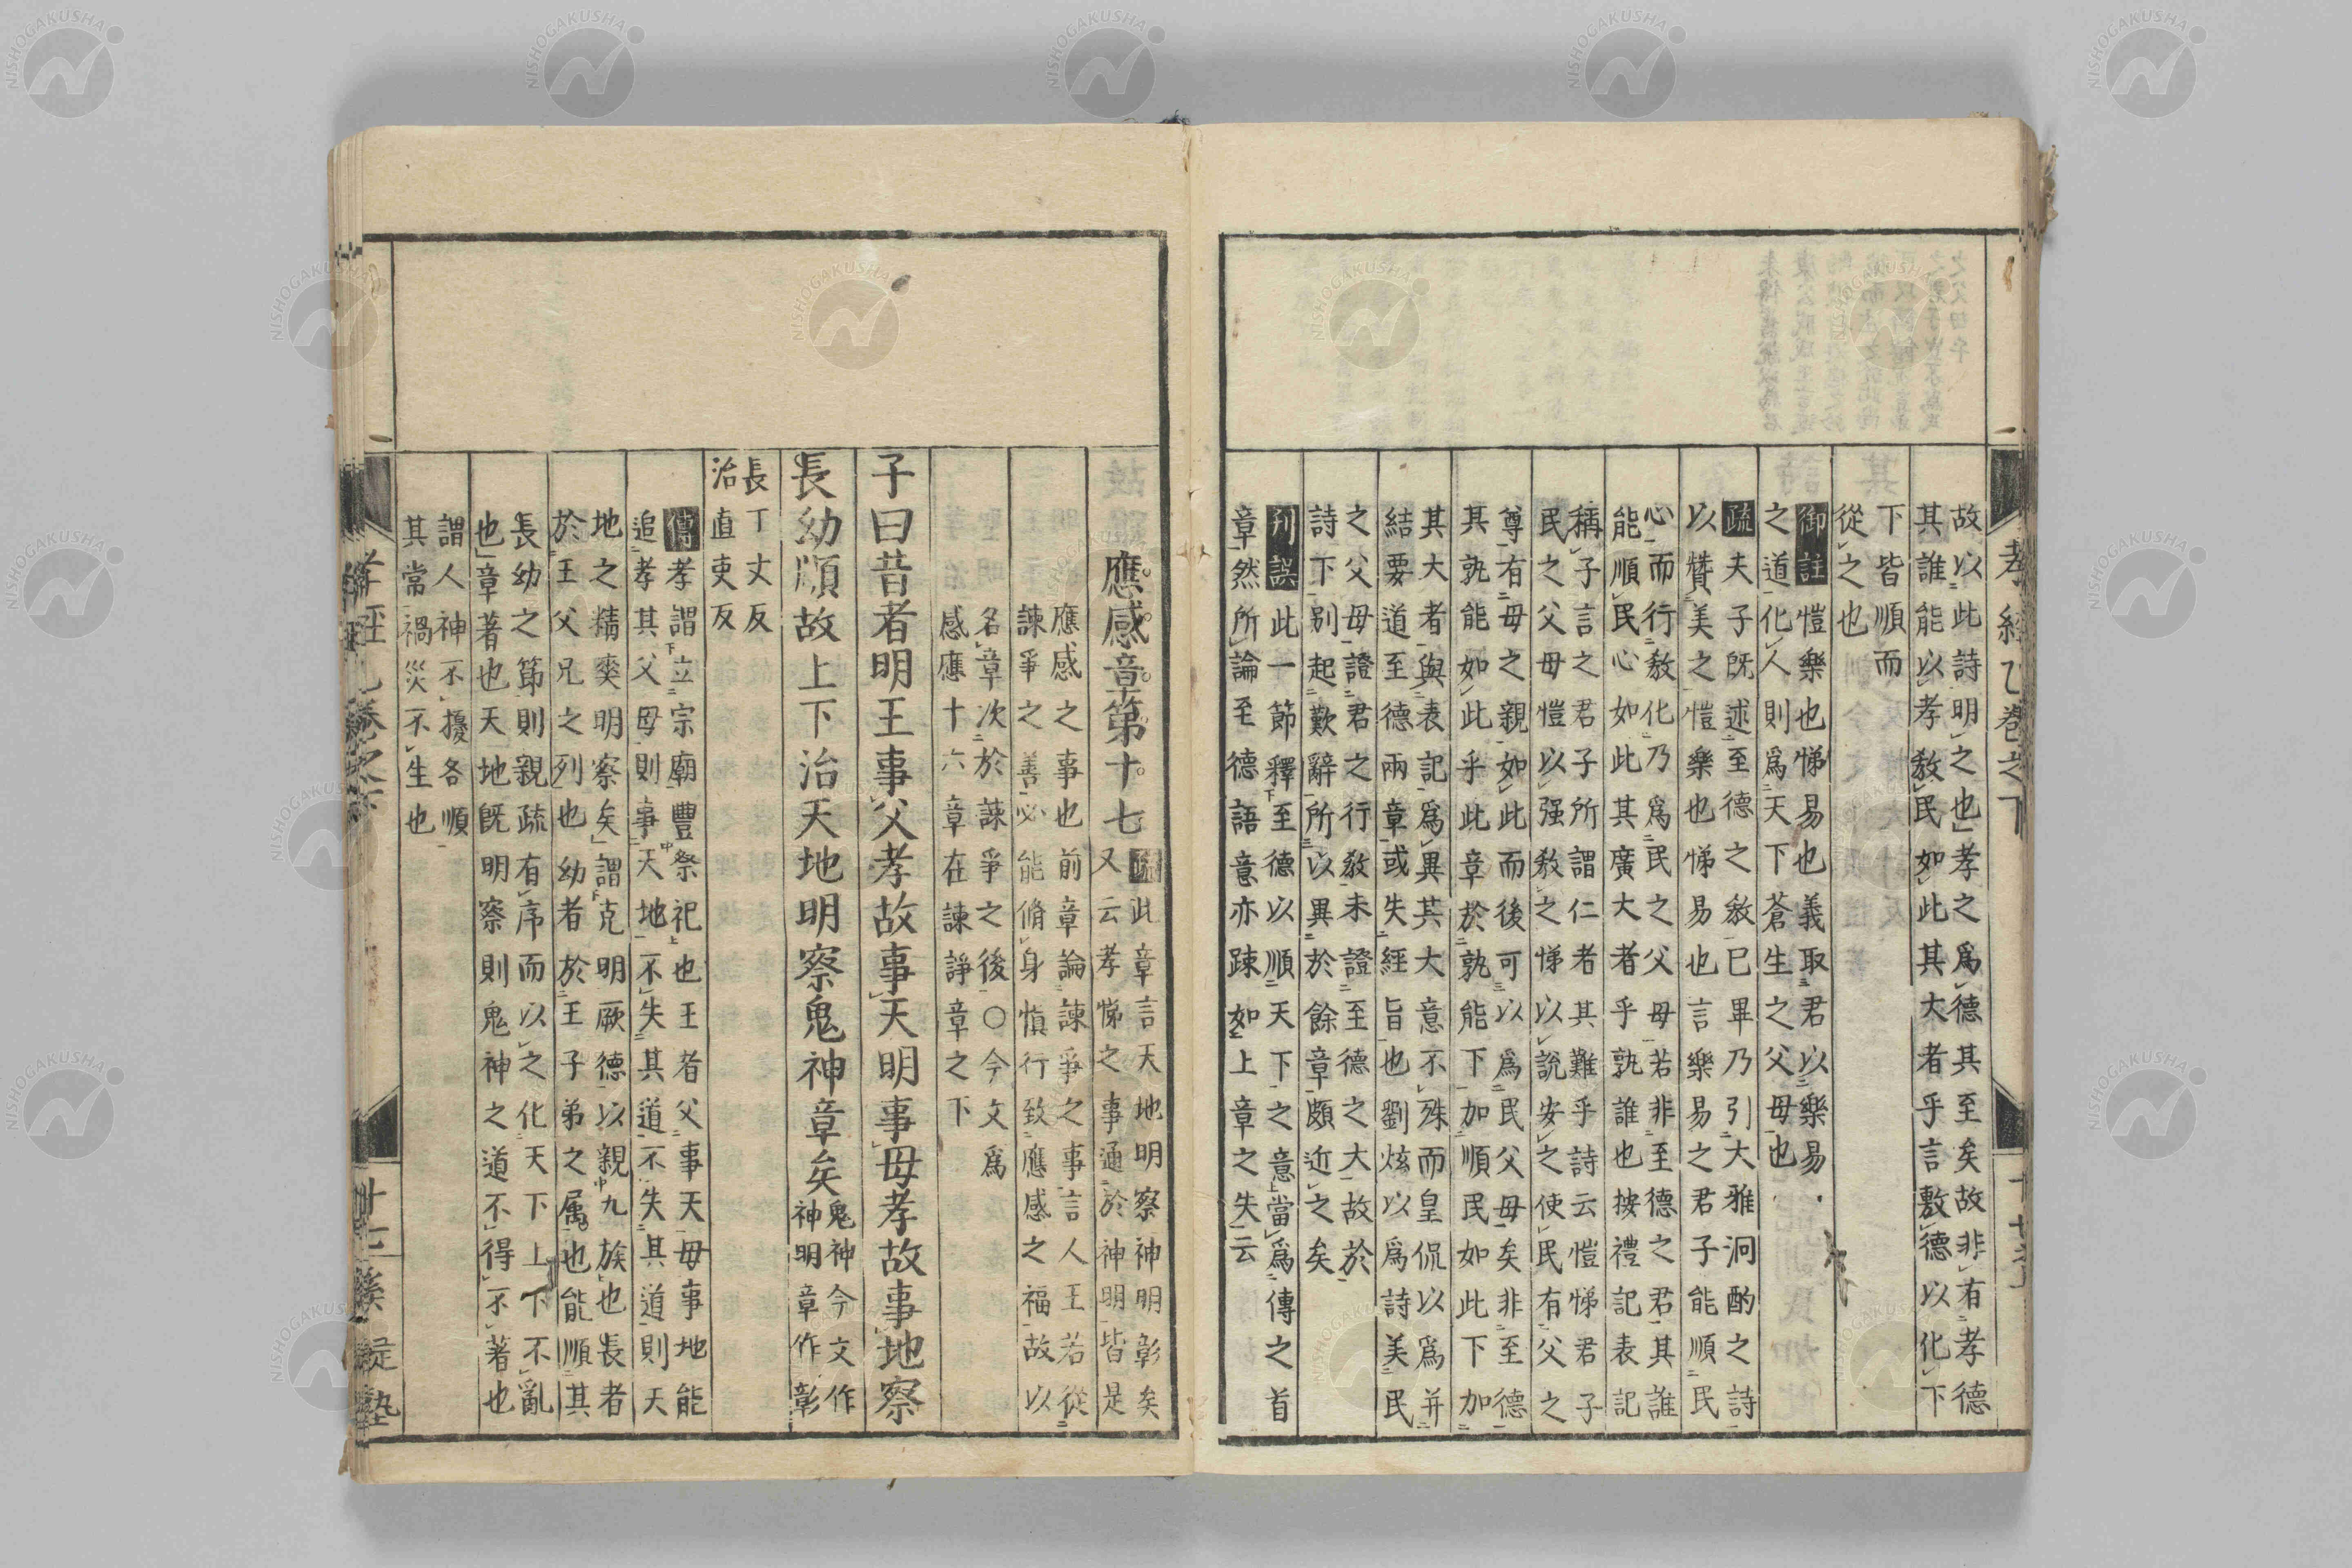 孝經 卷之下
故以此詩明之也孝之爲德其至矣故非有孝德
其誰能以孝教民如此其大者乎言敷德以化下
下皆順而
從之也
御註愷樂也悌易也義取君以樂易
之道化人則爲天下蒼生之父母也
疏夫子既述至德之教已畢乃引大雅泂酌之詩
以贊美之愷樂也悌易也言樂易之君子能順民
心而行教化乃爲民之父母若非至德之君其誰
能順民心如此其廣大者乎孰誰也按禮記表記
稱子言之君子所謂仁者其難乎詩云愷悌君子
民之父母愷以强教之悌以說安之使民有父之
尊有母之親如此而後可以爲民父母矣非至德
其孰能如此乎此章於孰能下加順民如此下加
其大者與表記爲異其大意不殊而皇侃以爲并
結要道至德兩章或失經旨也劉炫以爲詩美民
之父母證君之行教未證至德之大故於
詩下别起歎辭所以異於餘章頗近之矣
刊誤此一節釋至德以順天下之意當爲傳之首
章然所論至德語意亦踈如上章之失云
應感章第十七
疏此章言天地明察神明彰矣
又云孝悌之事通於神明皆是
應感之事也前章論諫爭之事言人王若從
諫爭之善必能脩身慎行致應感之福故以
名章次於諫爭之後○今文爲
感應十六章在諫諍章之下
子曰昔者明王事父孝故事天明事母孝故事地察
長幼順故上下治天地明察鬼神章矣
鬼神今文作
神明章作彰
長丁丈反
治直吏反
傳孝謂立宗廟豐祭祀也王者父事天母事地能
追孝其父母則事天地不失其道不失其道則天
地之精爽明察矣謂克明厥德以親九族也長者
於王父兄之列也幼者於王子弟之属也能順其
長幼之節則親疏有序而以之化天下上下不亂
也章著也天地既明察則鬼神之道不得不著也
謂人神不擾各順
其常禍災不生也
孝經 卷之下
廿七